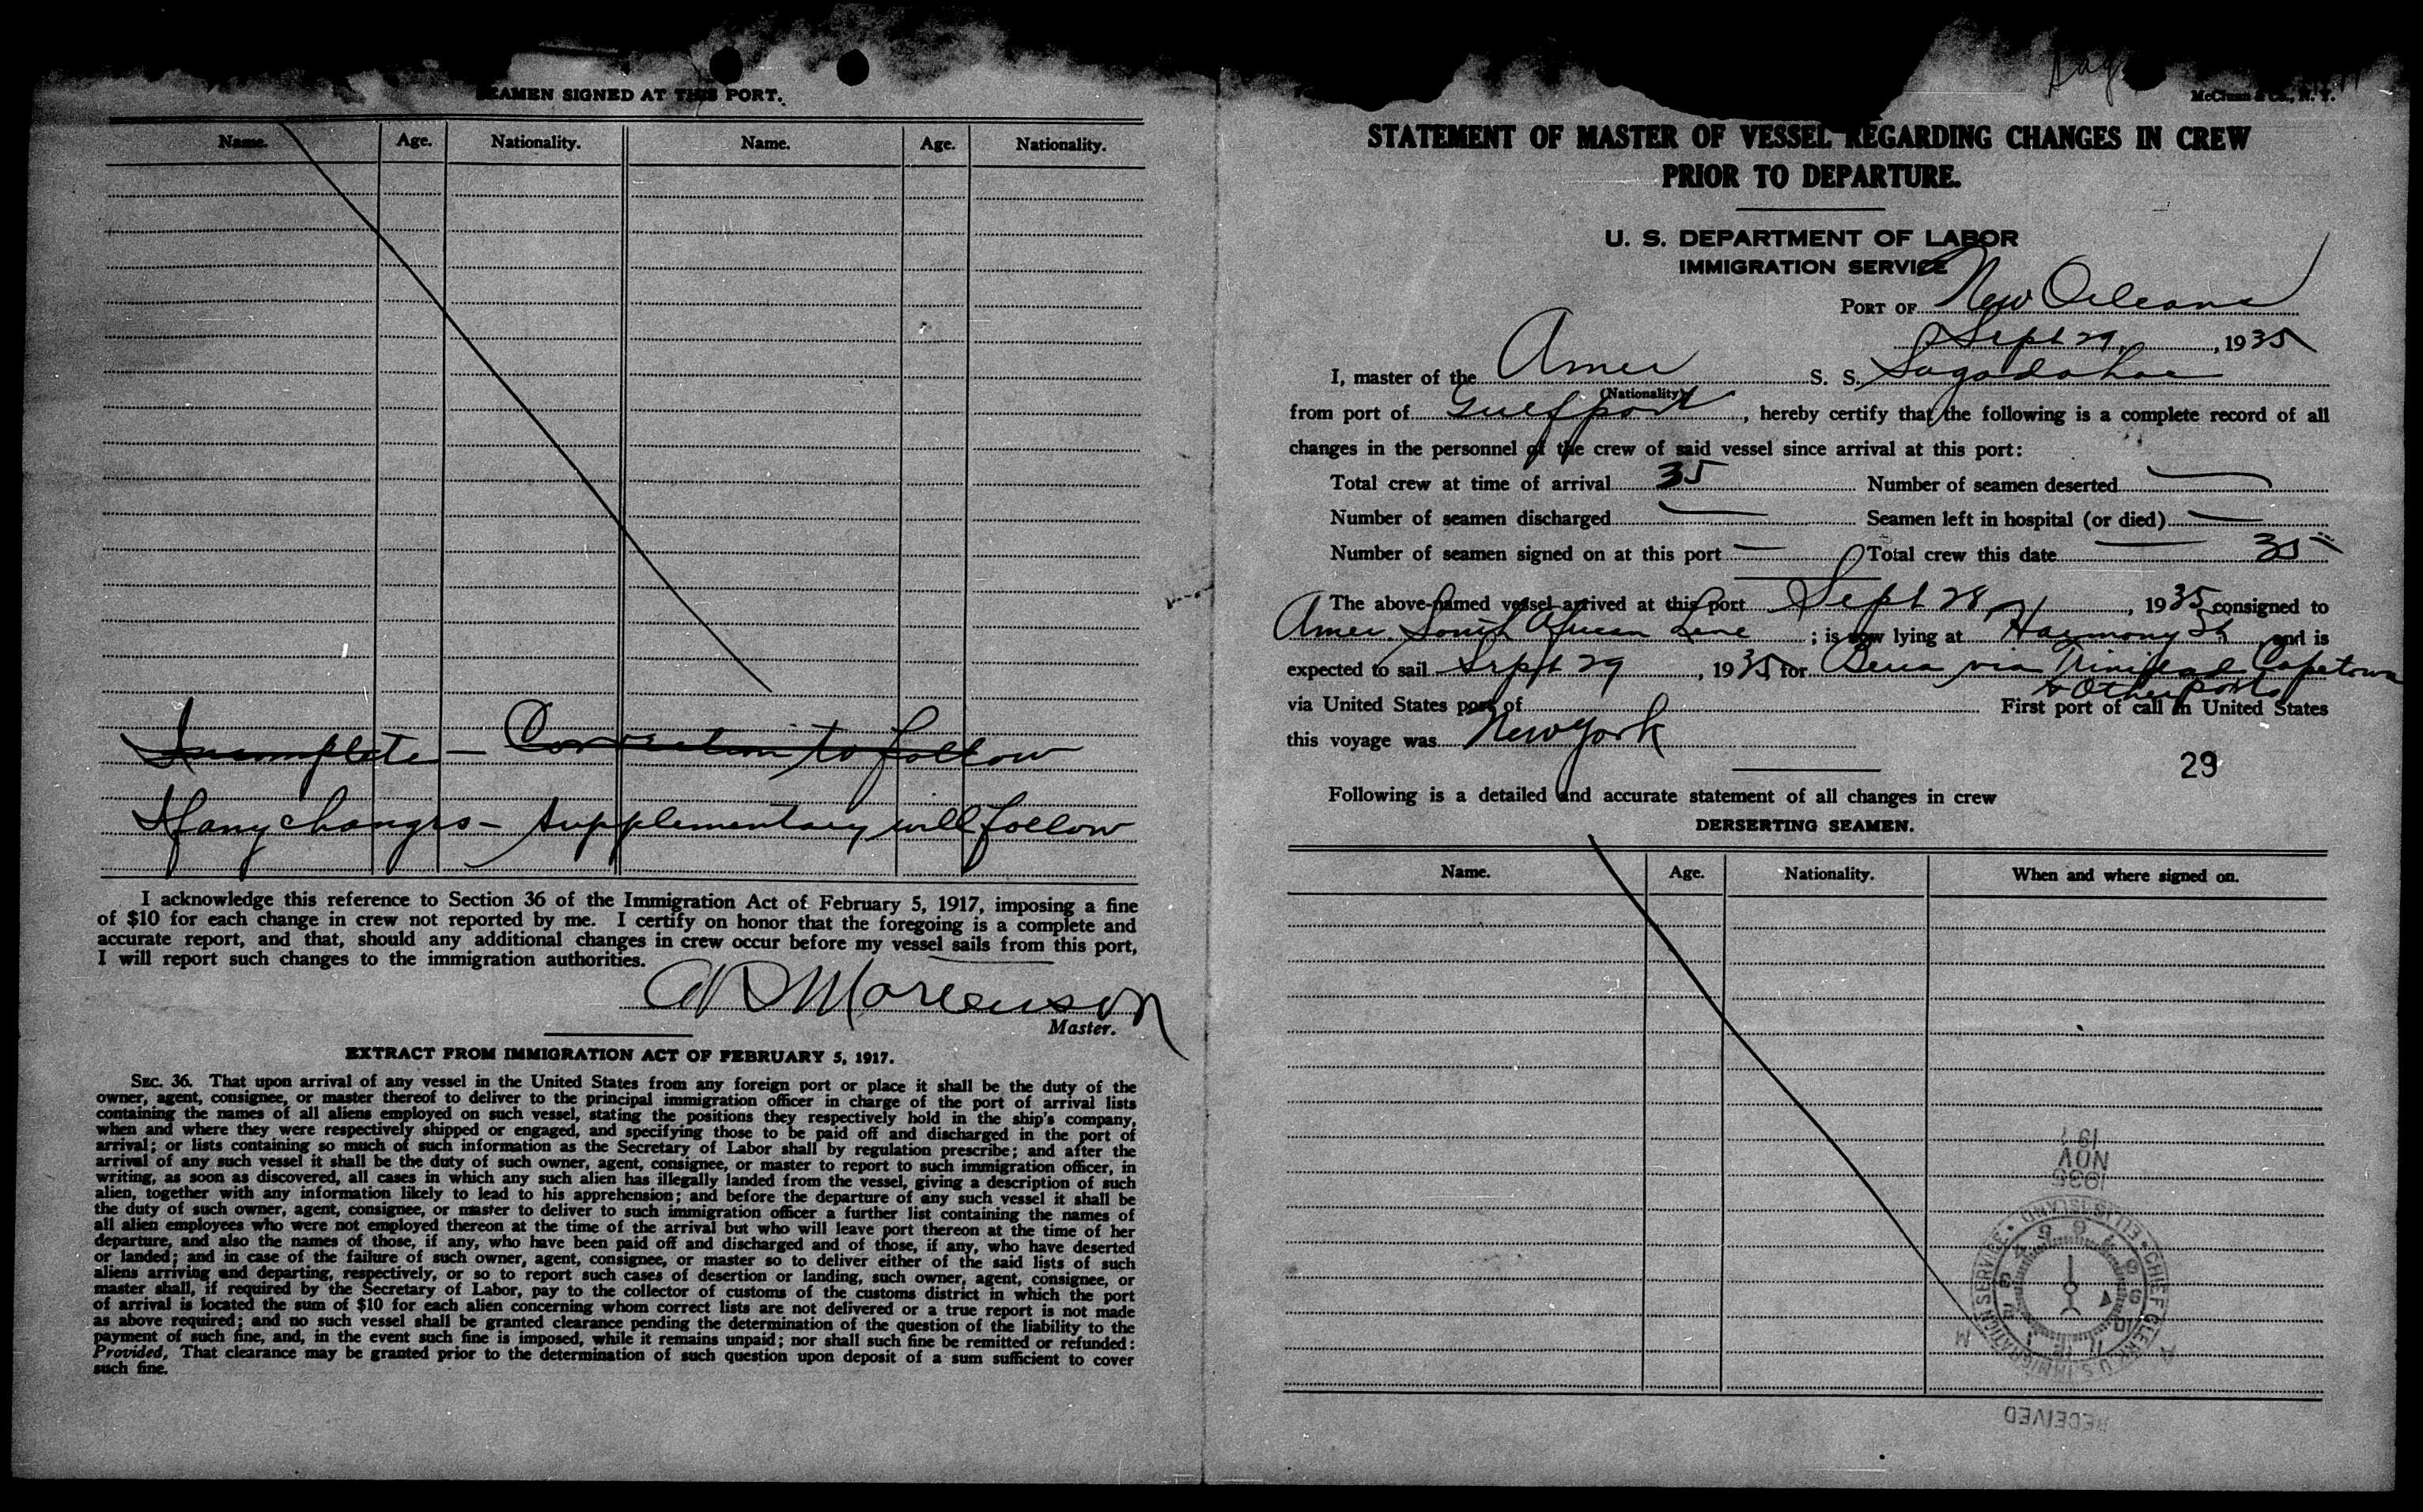 SEAMEN SIGNED AT THIS PORT.
Name. Age. Nationality. Name. Age. Nationality.
Incomplete — Correction to follow
If any changes — supplementary will follow
I acknowledge this reference to Section 36 of the Immigration Act of February 5, 1917, imposing a fine
of $10 for each change in crew not reported by me. I certify on honor that the foregoing is a complete and
accurate report, and that, should any additional changes in crew occur before my vessel sails from this port,
I will report such changes to the immigration authorities.
Master.
EXTRACT FROM IMMIGRATION ACT OF FEBRUARY 5, 1917.
SEC. 36. That upon arrival of any vessel in the United States from any foreign port or place it shall be the duty of the
owner, agent, consignee, or master thereof to deliver to the principal immigration officer in charge of the port of arrival lists
containing the names of all aliens employed on such vessel, stating the positions they respectively hold in the ship's company,
when and where they were respectively shipped or engaged, and specifying those to be paid off and discharged in the port of
arrival; or lists containing so much of such information as the Secretary of Labor shall by regulation prescribe; and after the
arrival of any such vessel it shall be the duty of such owner, agent, consignee, or master to report to such immigration officer, in
writing, as soon as discovered, all cases in which any such alien has illegally landed from the vessel, giving a description of such
alien, together with any information likely to lead to his apprehension; and before the departure of any such vessel it shall be
the duty of such owner, agent, consignee, or master to deliver to such immigration officer a further list containing the names of
all alien employees who were not employed thereon at the time of the arrival but who will leave port thereon at the time of her
departure, and also the names of those, if any, who have been paid off and discharged and of those, if any, who have deserted
or landed; and in case of the failure of such owner, agent, consignee, or master so to deliver either of the said lists of such
aliens arriving and departing, respectively, or so to report such cases of desertion or landing, such owner, agent, consignee, or
master shall, if required by the Secretary of Labor, pay to the collector of customs of the customs district in which the port
of arrival is located the sum of $10 for each alien concerning whom correct lists are not delivered or a true report is not made
as above required; and no such vessel shall be granted clearance pending the determination of the question of the liability to the
payment of such fine, and, in the event such fine is imposed, while it remains unpaid; nor shall such fine be remitted or refunded:
Provided, That clearance may be granted prior to the determination of such question upon deposit of a sum sufficient to cover
such fine.
STATEMENT OF MASTER OF VESSEL REGARDING CHANGES IN CREW
PRIOR TO DEPARTURE.
U. S. DEPARTMENT OF LABOR
IMMIGRATION SERVICE
PORT OF New Orleans
Sept 29, 1935
I, master of the Amer S. S. Sagadahoc
(Nationality)
from port of Gulfport, hereby certify that the following is a complete record of all
changes in the personnel of the crew of said vessel since arrival at this port:
Total crew at time of arrival 35 Number of seamen deserted —
Number of seamen discharged — Seamen left in hospital (or died) —
Number of seamen signed on at this port — Total crew this date 35
The above-named vessel arrived at this port Sept 28, 1935, consigned to
Amer. South African Line; is now lying at Harmony St and is
expected to sail Sept 29, 1935, for Beira via Trinidad Capetown
& Other ports
via United States port of First port of call in United States
this voyage was New York
29
Following is a detailed and accurate statement of all changes in crew
DERSERTING SEAMEN.
Name. Age. Nationality. When and where signed on.
1935
NOV
RECEIVED
CHIEF CLERK U.S. IMMIGRATION SERVICE • ELLIS ISLAND